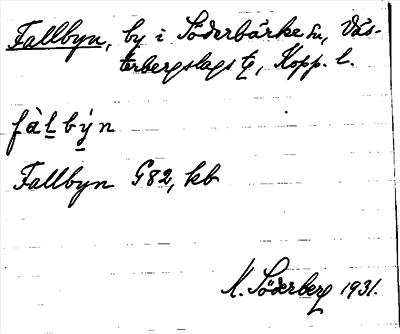 Fallbyn, by i Söderbärke sn, Väs-
terbergslags tg, Kopp. l.
fàḷbýn
Fallbyn G82, kb
K. Söderberg 1931.